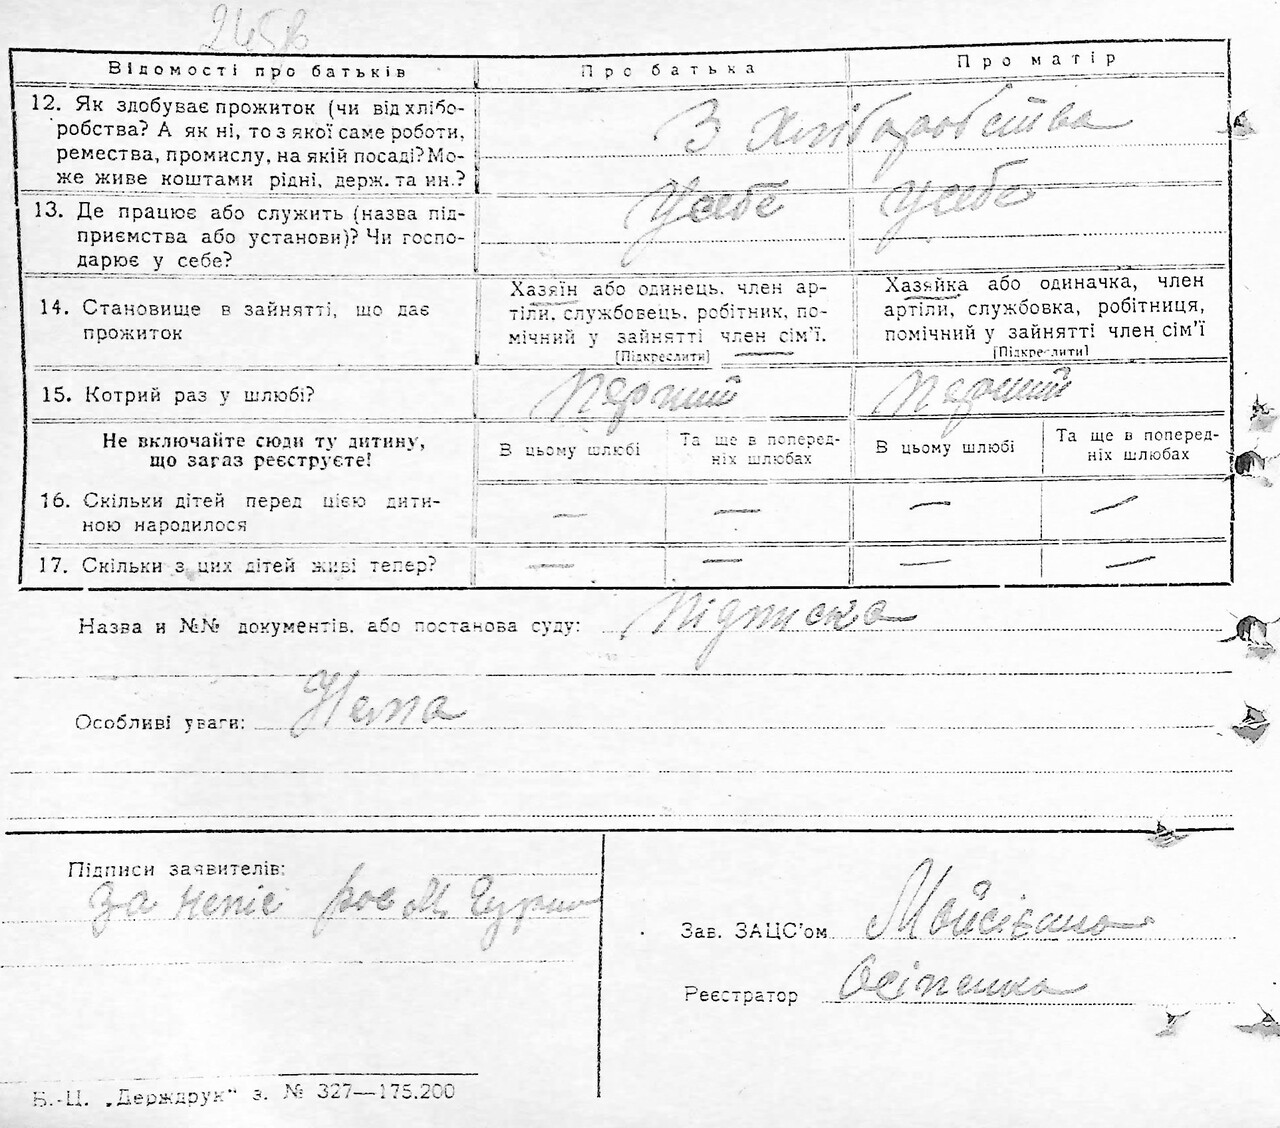 245в
Відомості про батьків
Про батька
Про матір
12. Як здобуває прожиток (чи від хлібо-
робства? А як ні, то з якої саме роботи,
ремества, промислу, на якій посаді? Мо-
же живе коштами рідні, держ. та ин.?
З хліборобства
13. Де працює або служить (назва під-
приємства або установи)? Чи госпо-
дарює у себе?
У себе
У себе
14. Становище в зайнятті, що дає
прожиток
Хазяїн або одинець, член ар-
тіли, службовець, робітник, по-
мічний у зайнятті член сім'ї.
[Підкреслити]
Хазяйка або одиначка, член
артіли, службовка, робітниця,
помічний у зайнятті член сім'ї
[Підкреслити]
15. Котрий раз у шлюбі?
Перший
Перший
Не включайте сюди ту дитину,
що зараз реєструєте!
В цьому шлюбі
Та ще в поперед-
ніх шлюбах
В цьому шлюбі
Та ще в поперед-
ніх шлюбах
16. Скільки дітей перед цією дити-
ною народилося
— — — —
17. Скільки з цих дітей живі тепер?
— — — —
Назва и №№ документів, або постанова суду: Підписка
Особливі уваги: Нема
Підписи заявителів:
За непіс рос М.
Зав. ЗАЦС'ом
Реєстратор Осіпенко
Б.-Ц. „Держдрук“ з. № 327—175.200